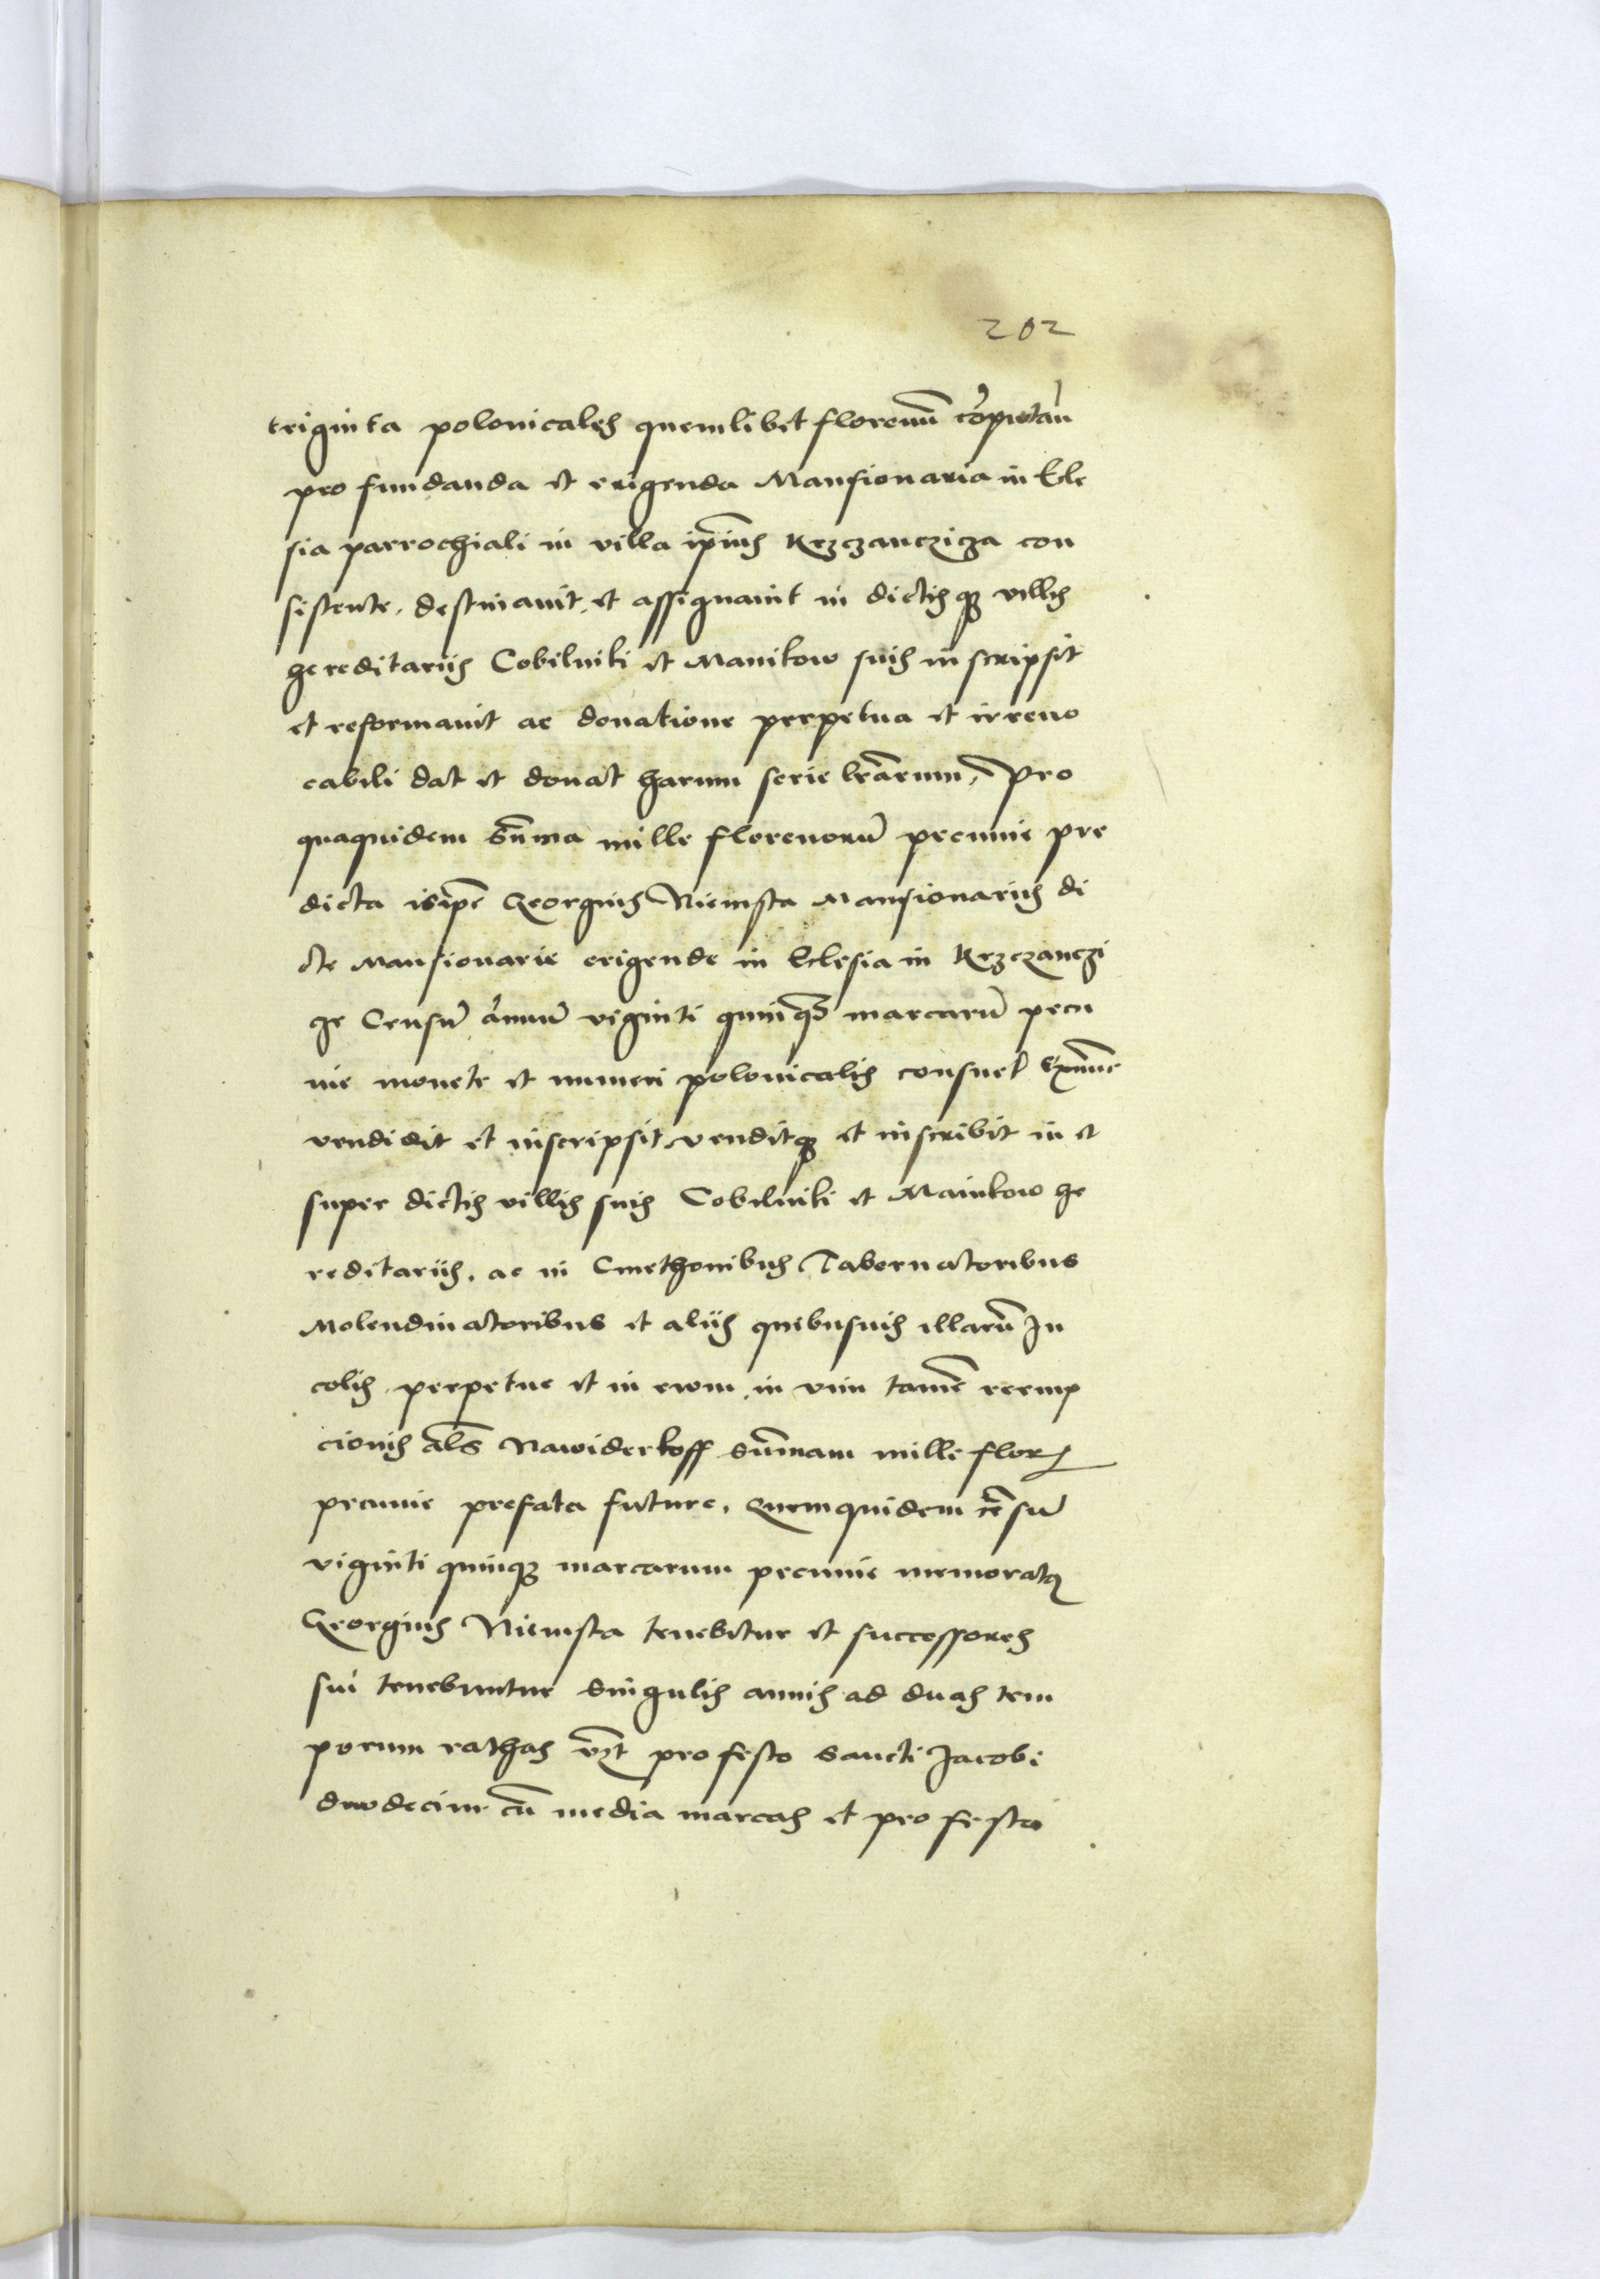 202
triginta polonicales quemlibet florenũ cõputan̄
pro fundanda et erigenda Mansionaria in Ecle
sia parrochiali in villa ipĩus Krzczanczicza con
sistente, destinavit, et assignavit in dictisqȝ villis
hereditariis Cobilniki et Manikow suis inscripsit
et reformavit ac donatione perpetua et irrevo
cabili dat et donat harum serie lr̃arum, Pro
quaquidem sum̃a mille florenorũ pecunie pre
dicta is ip̃e Georgius Niemsta Mansionariis di
cte Mansionarie erigende in Eclesia in Krzczanczi
cze Censũ annuũ viginti quinqȝ marcarũ pecu
nie monete et numeri polonicalis consuet̃
vendidit et inscripsit, venditqȝ et inscribit in et
super dictis villis suis Cobilniki et Manikow he
reditariis, ac in Cmethonibus Tabernatoribus
Molendinatoribus et aliis quibusuis illarũ In
colis, perpetue et in evum, in vim tamẽ reemp
cionis al̃s Nawiderkoff sum̃am mille flor̃
pecunie prefata future, Quemquidem cẽsũ
viginti quinqȝ marcarum pecunie memoratꝯ
Georgius Niemsta tenebitur et successores
sui tenebuntur singulis annis ad duas tem
porum rathas vꝫt pro festo sancti Jacobi
duodecim cũ media marcas et pro festo